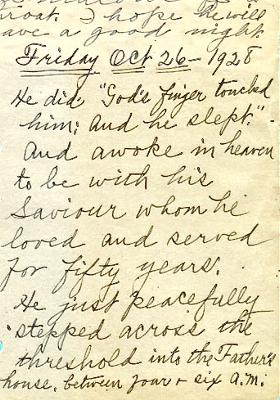 throat. I hope he will
have a good night
Friday Oct 26 - 1928
He did. "God's finger touched
him; and he slept." -
And awoke in heaven
to be with his
Saviour whom he
loved and served
for fifty years.
He just peacefully
stepped across the
threshold into the Father's
house, between four + six A.M.